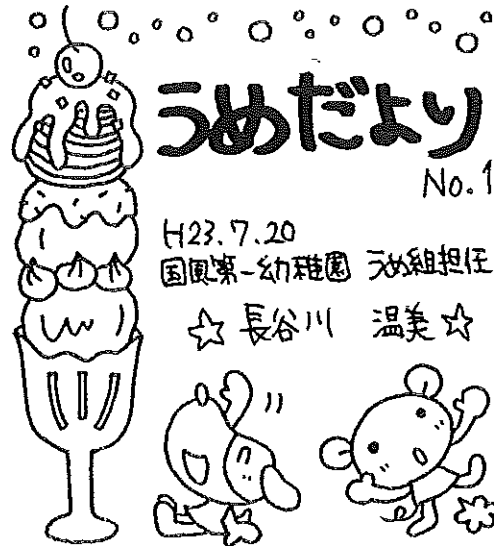 うめだより
No.1
H23.7.20
国風第一幼稚園 うめ組担任
☆ 長谷川 温美 ☆